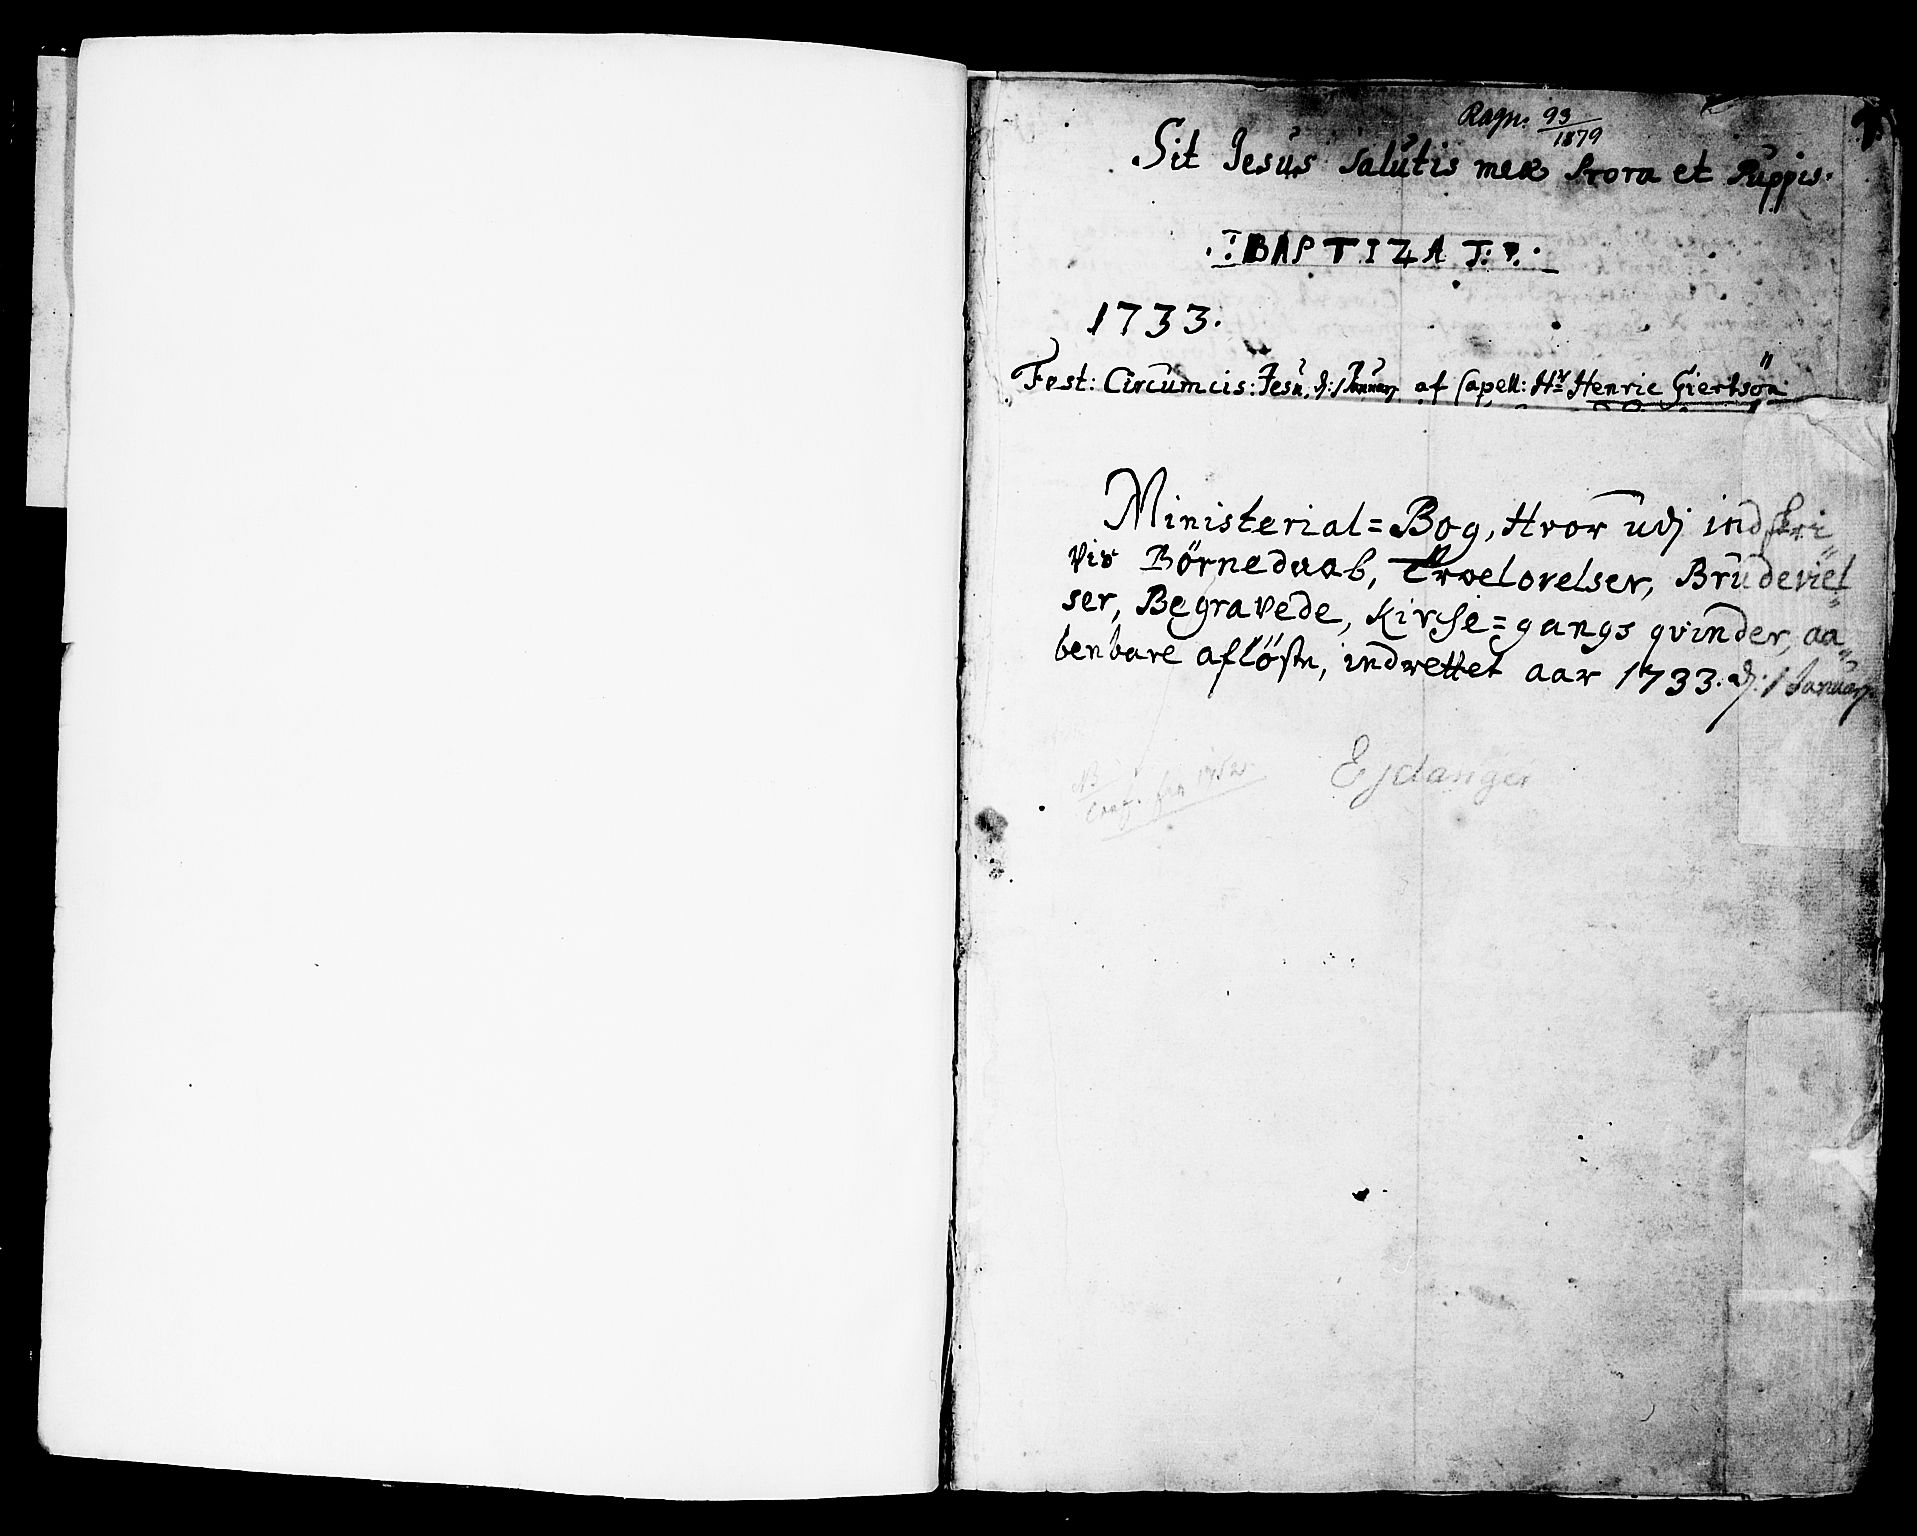 Ragn: 93/1879
1.
Sit Jesus Salutis meæ Prora et Puppis.
BAPTIZATI.
1733.
Fest: Circumcis: Jesu, d: 1 Januar af Capell: Hr Henric Giertsøn
Ministerial=Bog, Hvor udj indskri
vis Börnedaab, Troelovelser, Brudeviel
ser, Begravede, Kirche=gangs qvinder, aa
benbare aflöste, indrettet aar 1733. d: 1 Januar
Ejdanger
NB
fra 1752